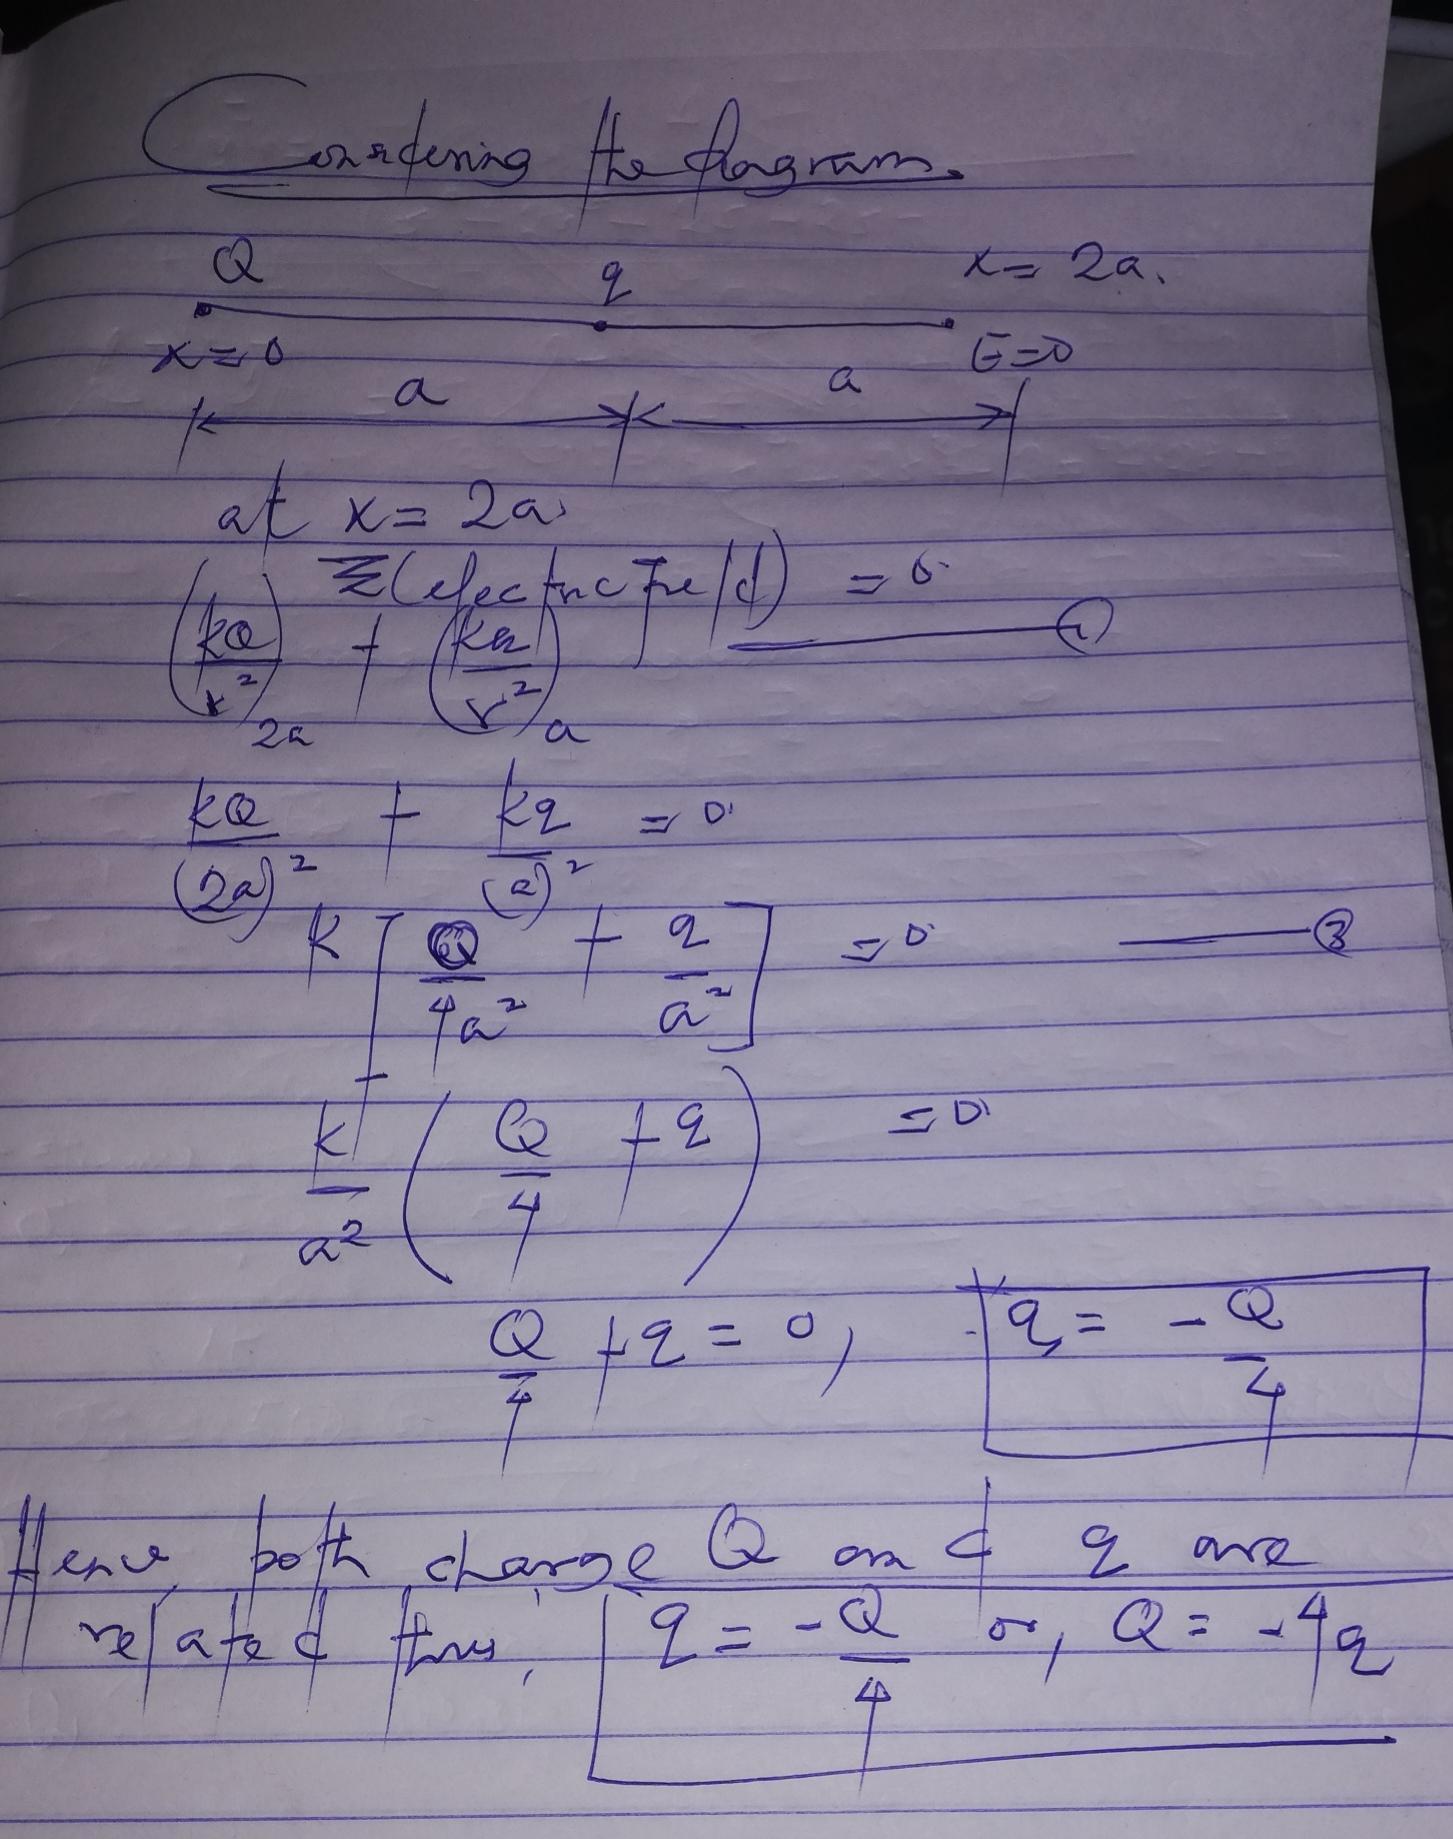 Considering the diagram.
Q q x = 2a.
x = 0 E = 0
a a
at x = 2a
Σ(electric field) = 0.
(kQ/r²)2a + (kq/r²)a ——— ①
kQ/(2a)² + kq/(a)² = 0.
k[Q/4a² + q/a²] = 0 ——— ②
k/a² (Q/4 + q) = 0
Q/4 + q = 0, q = -Q/4
Hence both charge Q and q are
related thus, q = -Q/4 or, Q = -4q